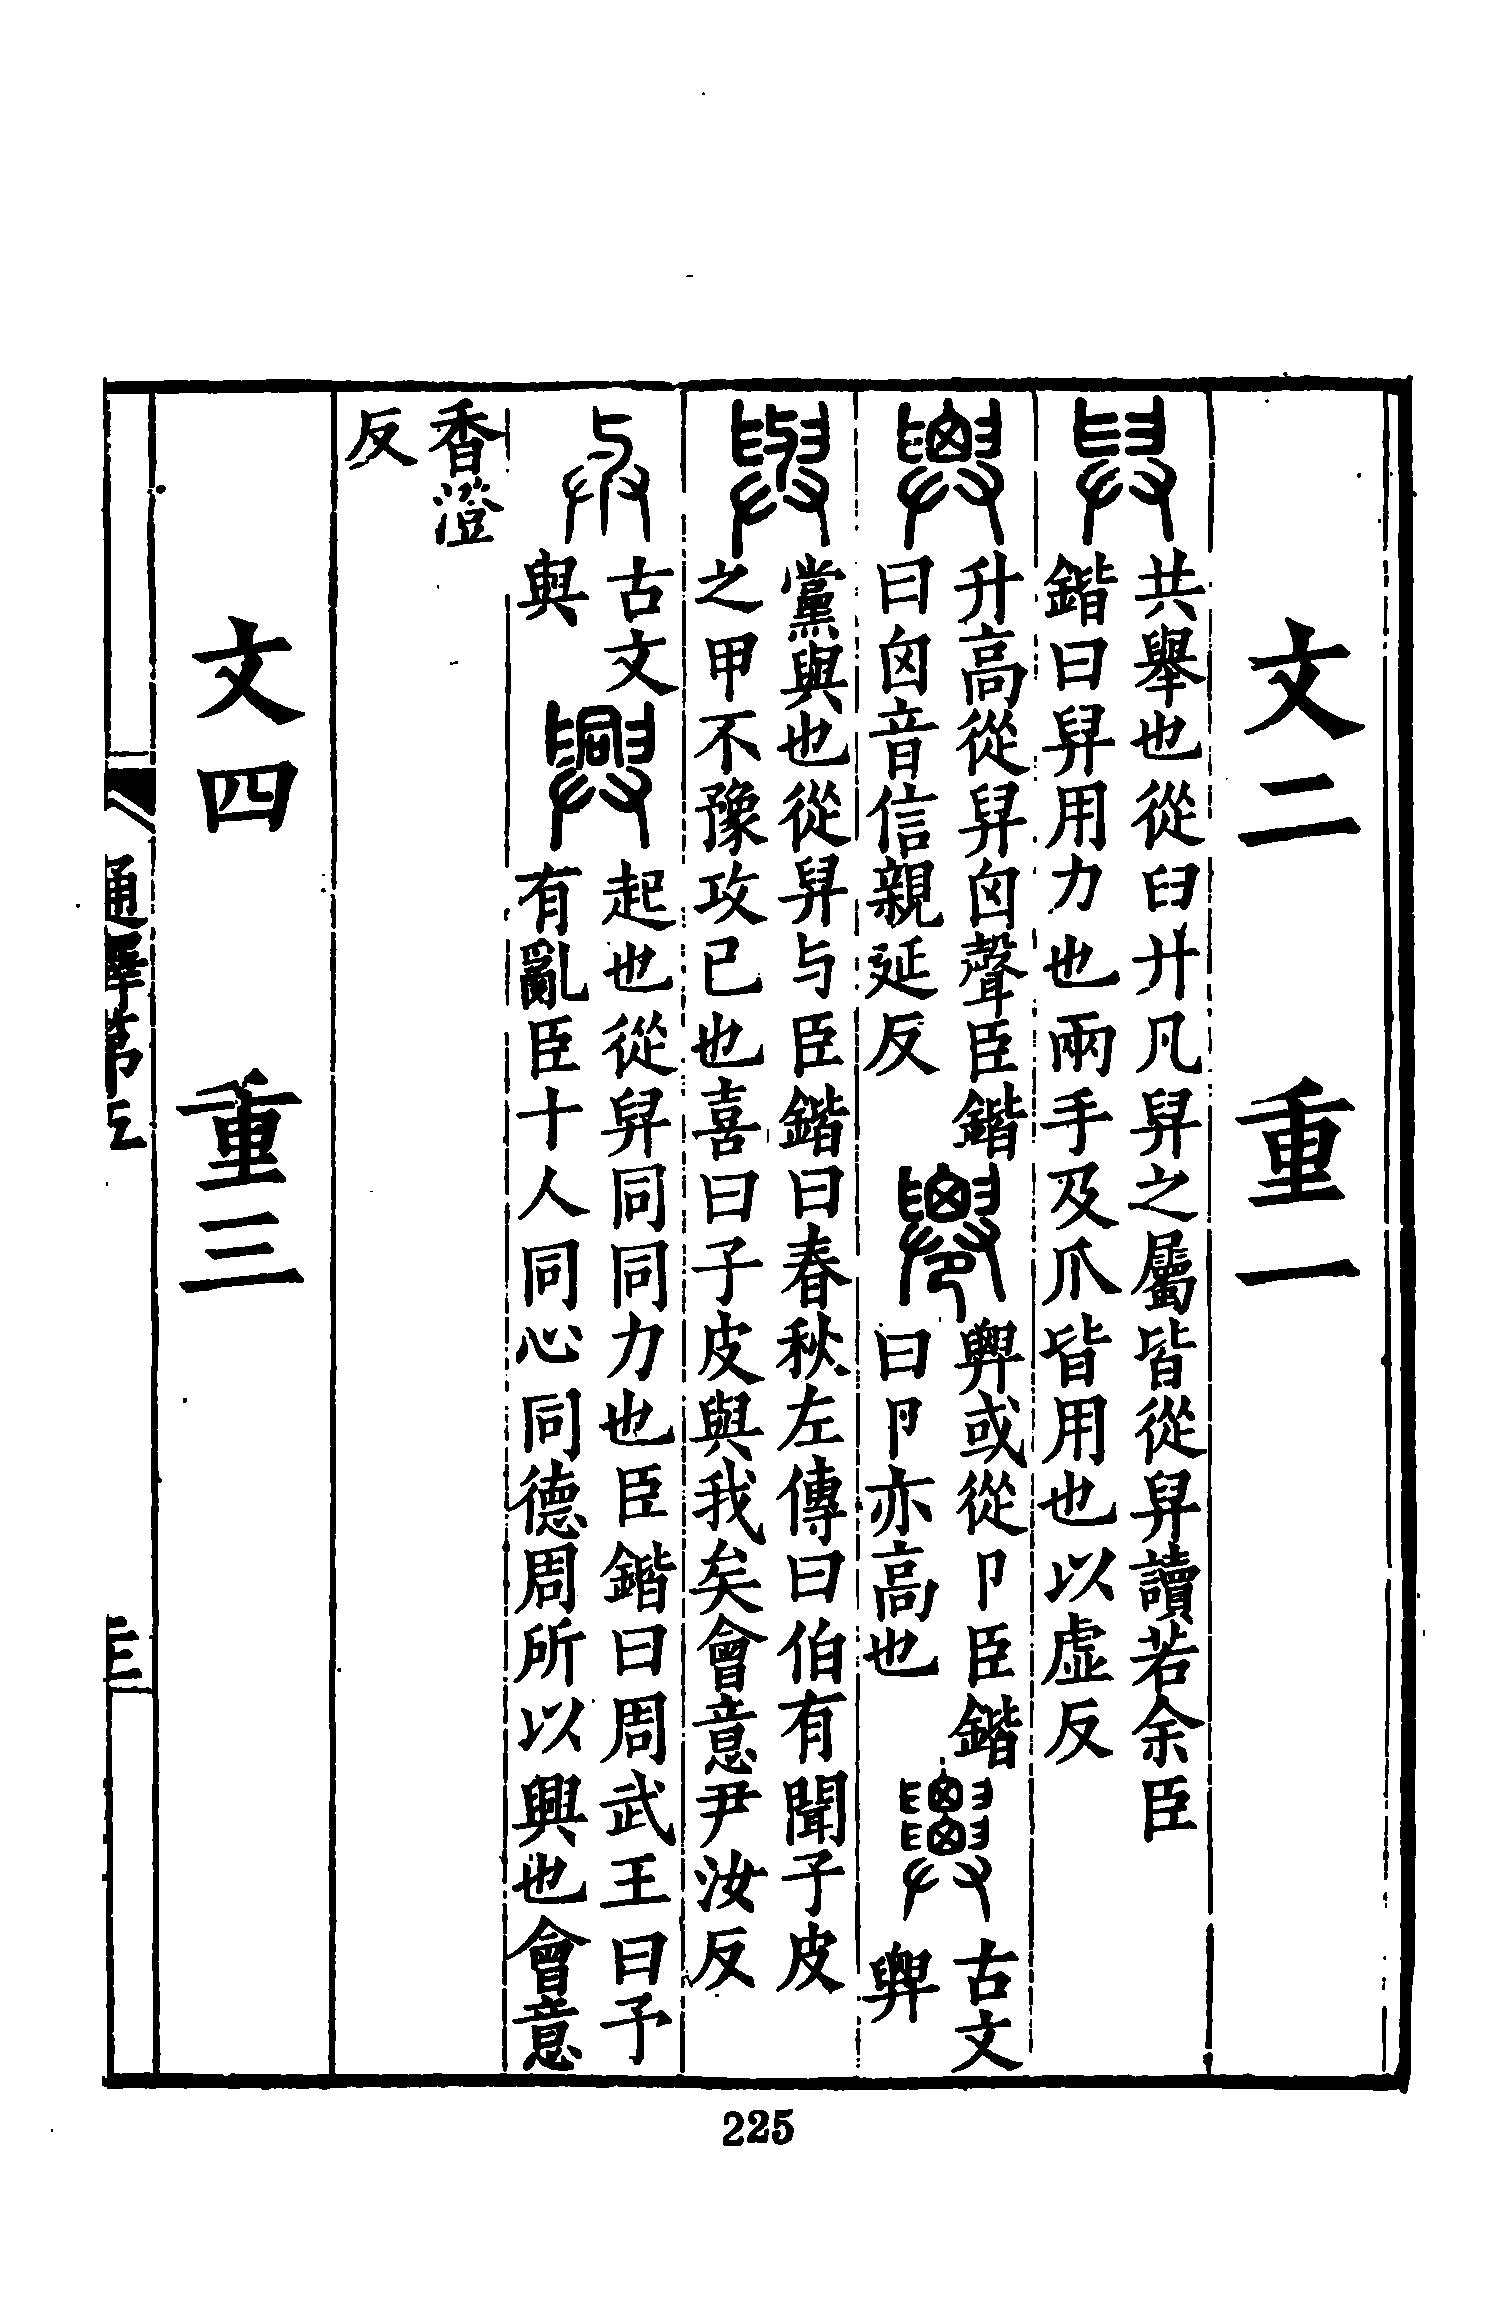 文二　重一
舁
共舉也從臼廾凡舁之屬皆從舁讀若余臣
鍇曰舁用力也兩手及爪皆用也以虛反
𦥷
升高從舁囟聲臣鍇
曰囟音信親延反
𦥷或從卩臣鍇
曰卩亦高也
古文
𦥷
與
黨與也從舁与臣鍇曰春秋左傳曰伯有聞子皮
之甲不豫攻已也喜曰子皮與我矣會意尹汝反
古文
與
興
起也從舁同同力也臣鍇曰周武王曰予
有亂臣十人同心同德周所以興也會意
香澄
反
文四　重三
通釋第五
225